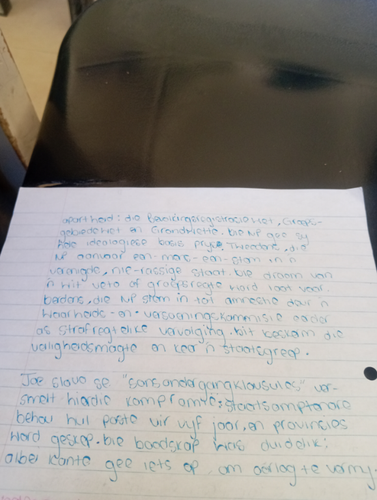 apartheid: die Bevolkingsregistrasiewet, Groeps-
gebiedewet en Grondwette. Die NP gee sy
hele ideologiese basis prys. Tweedens, die
NP aanvaar een-mens-een-stem in 'n
verenigde, nie-rassige staat. Die droom van
'n wit veto of groepsregte word laat vaar.
Derdens, die NP stem in tot amnestie deur 'n
Waarheids- en Versoeningskommissie eerder
as strafregtelike vervolging. Dit beskerm die
veiligheidsmagte en keer 'n staatsgreep.
Joe Slovo se "sonsondergangklousules" ver-
smelt hierdie kompromie; staatsamptenare
behou hul poste vir vyf jaar, en provinsies
word geskep. Die boodskap was duidelik:
albei kante gee iets op om oorlog te vermy.